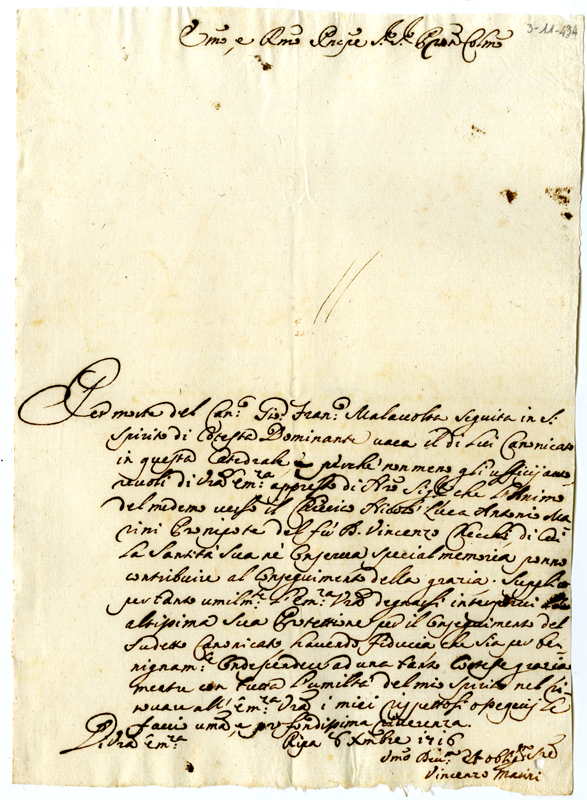 3-11-494
Em̃o, e Rm̃o Pncipe Sig.e Sig.e Pron Colmo
Per morte del Can.º Gio: Fran.º Malavolta seguita in S.
Spirito di Cotesta Dominante vaca il di lui Canonicato
in questa Catedrale, e perche non meno gli ufficij auto
revoli di Vrã Em.za appresso di Nrõ Sig.e che l'animo
del medemo verso il Chierico Nicolò Luca Antonio Ma
rini Pronipote del fù P. Vincenzo Recchi, di cui
La Santità Sua nè Conserva special memoria ponno
contribuire al Conseguimento della grazia. Supplico
pertanto umilm.te l'Em.za Vrã degnarsi interporci
altissima Sua Protettione per il Conseguimento del
Sudetto Canonicato havendo fiducia che sia per be,
nignam.te Condescendere ad una tanto Cortese grazia
mentre con tutta l'umiltà del mio spirito nel rin
novare all'Em.za Vrã i miei rispettosi ossequij Le
faccio umã, e profondissima riverenza.
Di Vrã Em.za
Ripa 6 Xmbre 1716
Umo Dev.mo et oblig.mo Sre
Vincenzo Mauri